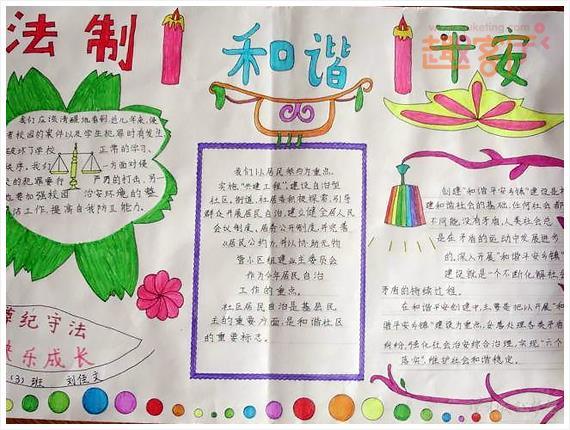 法制
和谐
平安
我们应该清醒地看到近几年来,侵
害校园的案件以及学生犯罪时有发生
破坏了学校
正常的学习、
秩序,我们
一方面对侵
严厉的打击,另一
也要加强校园
治安环境的整
法工作,提高自我防卫能力。
尊纪守法
快乐成长
(3)班
我们以居民参与为重点。
实施,“共建工程”,建设自治型
社区,街道,社居委积极探索,引导
群众开展居民自治,建立健全居人民
会议制度,居务公开制度,并完善
以居民公约为,并以协助元物
管小区组建业主委员会
作为今年居民自治
工作的重点。
社区居民自治是基层民
主的重要方面,是和谐社区
的重要标志。
创建“和谐平安乡镇”建设是构
建和谐社会的基础,任何社会都
不可能没有矛盾,人类社会总
是在矛盾的运动中发展进步
的,深入开展“和谐平安乡镇”
建设就是一个不断化解社会
矛盾的持续过程。
在和谐平安创建中,主要是把以开展“和
谐平安乡镇”建设为重点,妥善处理各类矛盾
纠纷,强化社会治安综合治理,实现“六个
落实”,维护社会和谐稳定。